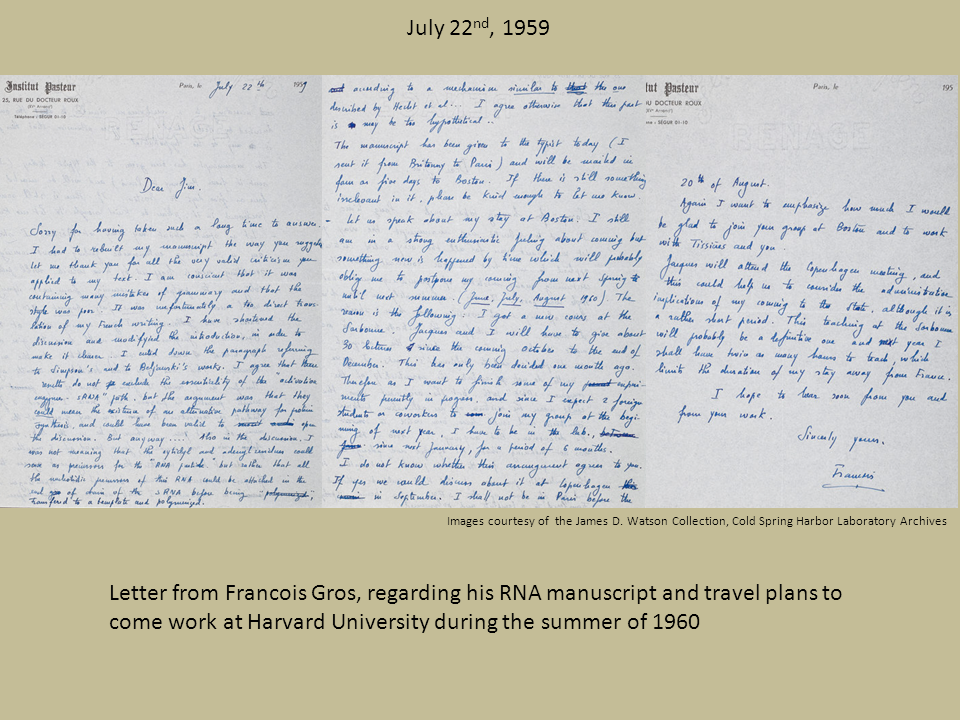 July 22nd, 1959
Institut Pasteur
25, RUE DU DOCTEUR ROUX
Téléphone : SÉGUR 01-10
Paris, le July 22 th 1959
Dear Jim.
Sorry for having taken such a long time to answer.
I had to rebuilt my manuscript the way you
let me thank you for all the very valid criticism you
applied to my text. I am conscient that it was
containing many mistakes of grammary and that the
style was poor. It was unfortunately a too direct trans-
lation of my french writing. I have shortened the
discussion and modified the introduction, in order to
make it clearer.. I cuted down the paragraph referring
to Simpson's and to Beljanski's works. I agree that these
results do not exclude the essentiality of the "activation
enzyme - sRNA" path. but the argument was that they
could mean the existence of an alternative pathway for protein
synthesis, and could have been valid to upon
the discussion. But anyway .... Also in the discussion, I
was not meaning that the cytidyl and adenyl residues could
serve as precursors for the "RNA but rather that all
the nucleotidic precursors of this RNA could be attached in the
end of chain of the sRNA before being "polymerized",
transfered to a template and polymerized.
according to a mechanism similar to that the one
described by Hecht et al... I agree otherwise that this part
is may be too hypothetical..
The manuscript has been given to the typist today (I
sent it from Britanny to Paris) and will be mailed in
four or five days to Boston. If there is still something
irrelevant in it, please be kind enough to let me know.
- Let us speak about my stay at Boston. I still
am in a strong enthusiastic feeling about coming but
something new is happened by time which will probably
oblige me to postpone my coming from next spring to
until next summer (June, July, August 1960) The
reason is the following: I got a new course at the
Sorbonne. Jacques and I will have to give about
30 lectures since the coming october to the end of
December. This has only been decided one months ago.
Therefore as I want to finish some of my experi-
ments presently in progress, and since I expect 2 foreign
students or coworkers to join my group at the begin-
ning of next year, I have to be in the lab.
since next January, for a period of 6 months.
I do not know whether this arrangement agrees to you.
If yes we could discuss about it at Copenhagen
in September. I shall not be in Paris before the
tut Pasteur
DU DOCTEUR ROUX
SÉGUR 01-10
Paris, le 195
20 th of August.
Again I want to emphasize how much I would
be glad to join your group at Boston and to work
with Tissières and you.
Jacques will attend the Copenhagen meeting, and
this could help us to consider the administrative
implications of my coming to the State, although it is
a rather short period. This teaching at the Sorbonne
will probably be a definitive one and next year I
shall have twice as many hours to teach, which
limits the duration of my stay away from France.
I hope to hear soon from you and
from your work.
Sincerly yours.
Francois
Images courtesy of the James D. Watson Collection, Cold Spring Harbor Laboratory Archives
Letter from Francois Gros, regarding his RNA manuscript and travel plans to
come work at Harvard University during the summer of 1960